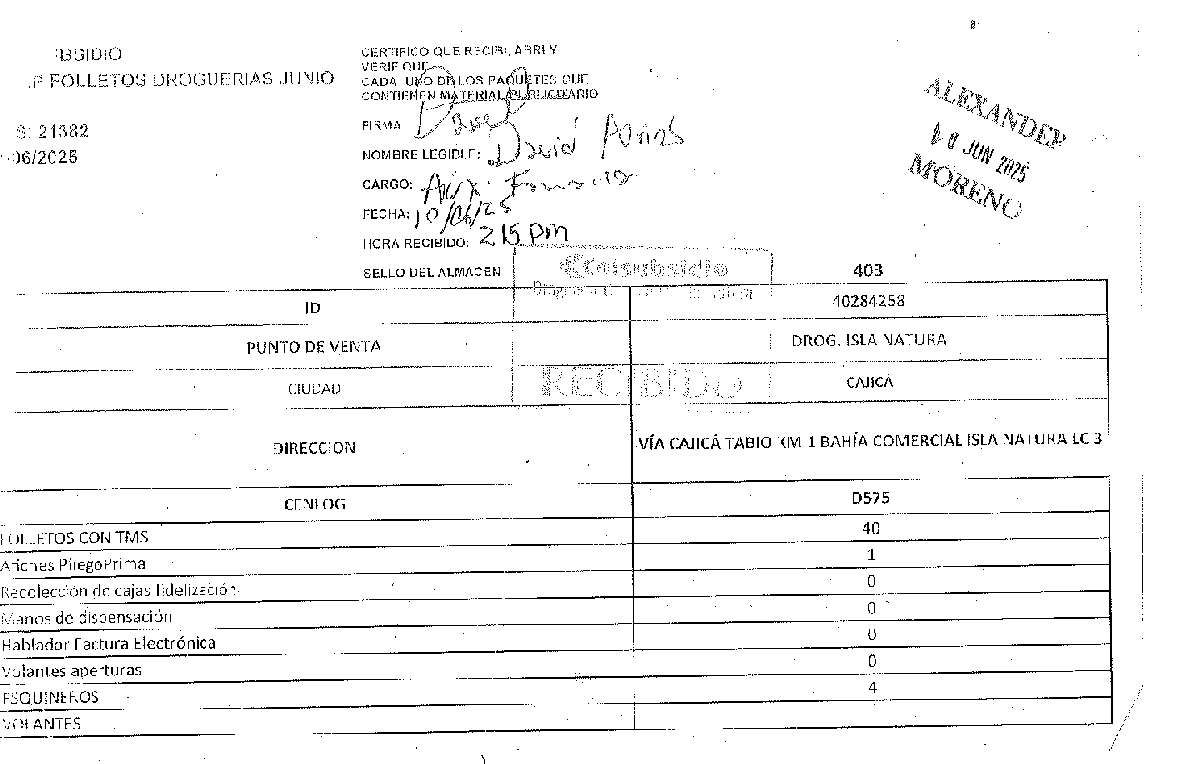 BSIDIO
FOLLETOS DROGUERIAS JUNIO
S: 21382
06/2025
CERTIFICO QUE RECIBI, ABRI Y
VERIFIQUE
CADA UNO DE LOS PAQUETES QUE
CONTIENEN MATERIAL PUBLICITARIO
FIRMA
NOMBRE LEGIBLE: David
CARGO:
FECHA: 10/06/25
HORA RECIBIDO: 2 15 pm
SELLO DEL ALMACEN
ALEXANDER
10 JUN 2025
MORENO
Colsubsidio
RECIBIDO
403
ID 40284258
PUNTO DE VENTA DROG. ISLA NATURA
CIUDAD CAJICÁ
DIRECCION VÍA CAJICÁ TABIO KM 1 BAHÍA COMERCIAL ISLA NATURA LC 3
CENLOG D575
FOLLETOS CON TMS 40
Afiches PliegoPrima 1
Recolección de cajas fidelización 0
Manos de dispensación 0
Hablador Factura Electrónica 0
Volantes aperturas 0
ESQUINEROS 4
VOLANTES